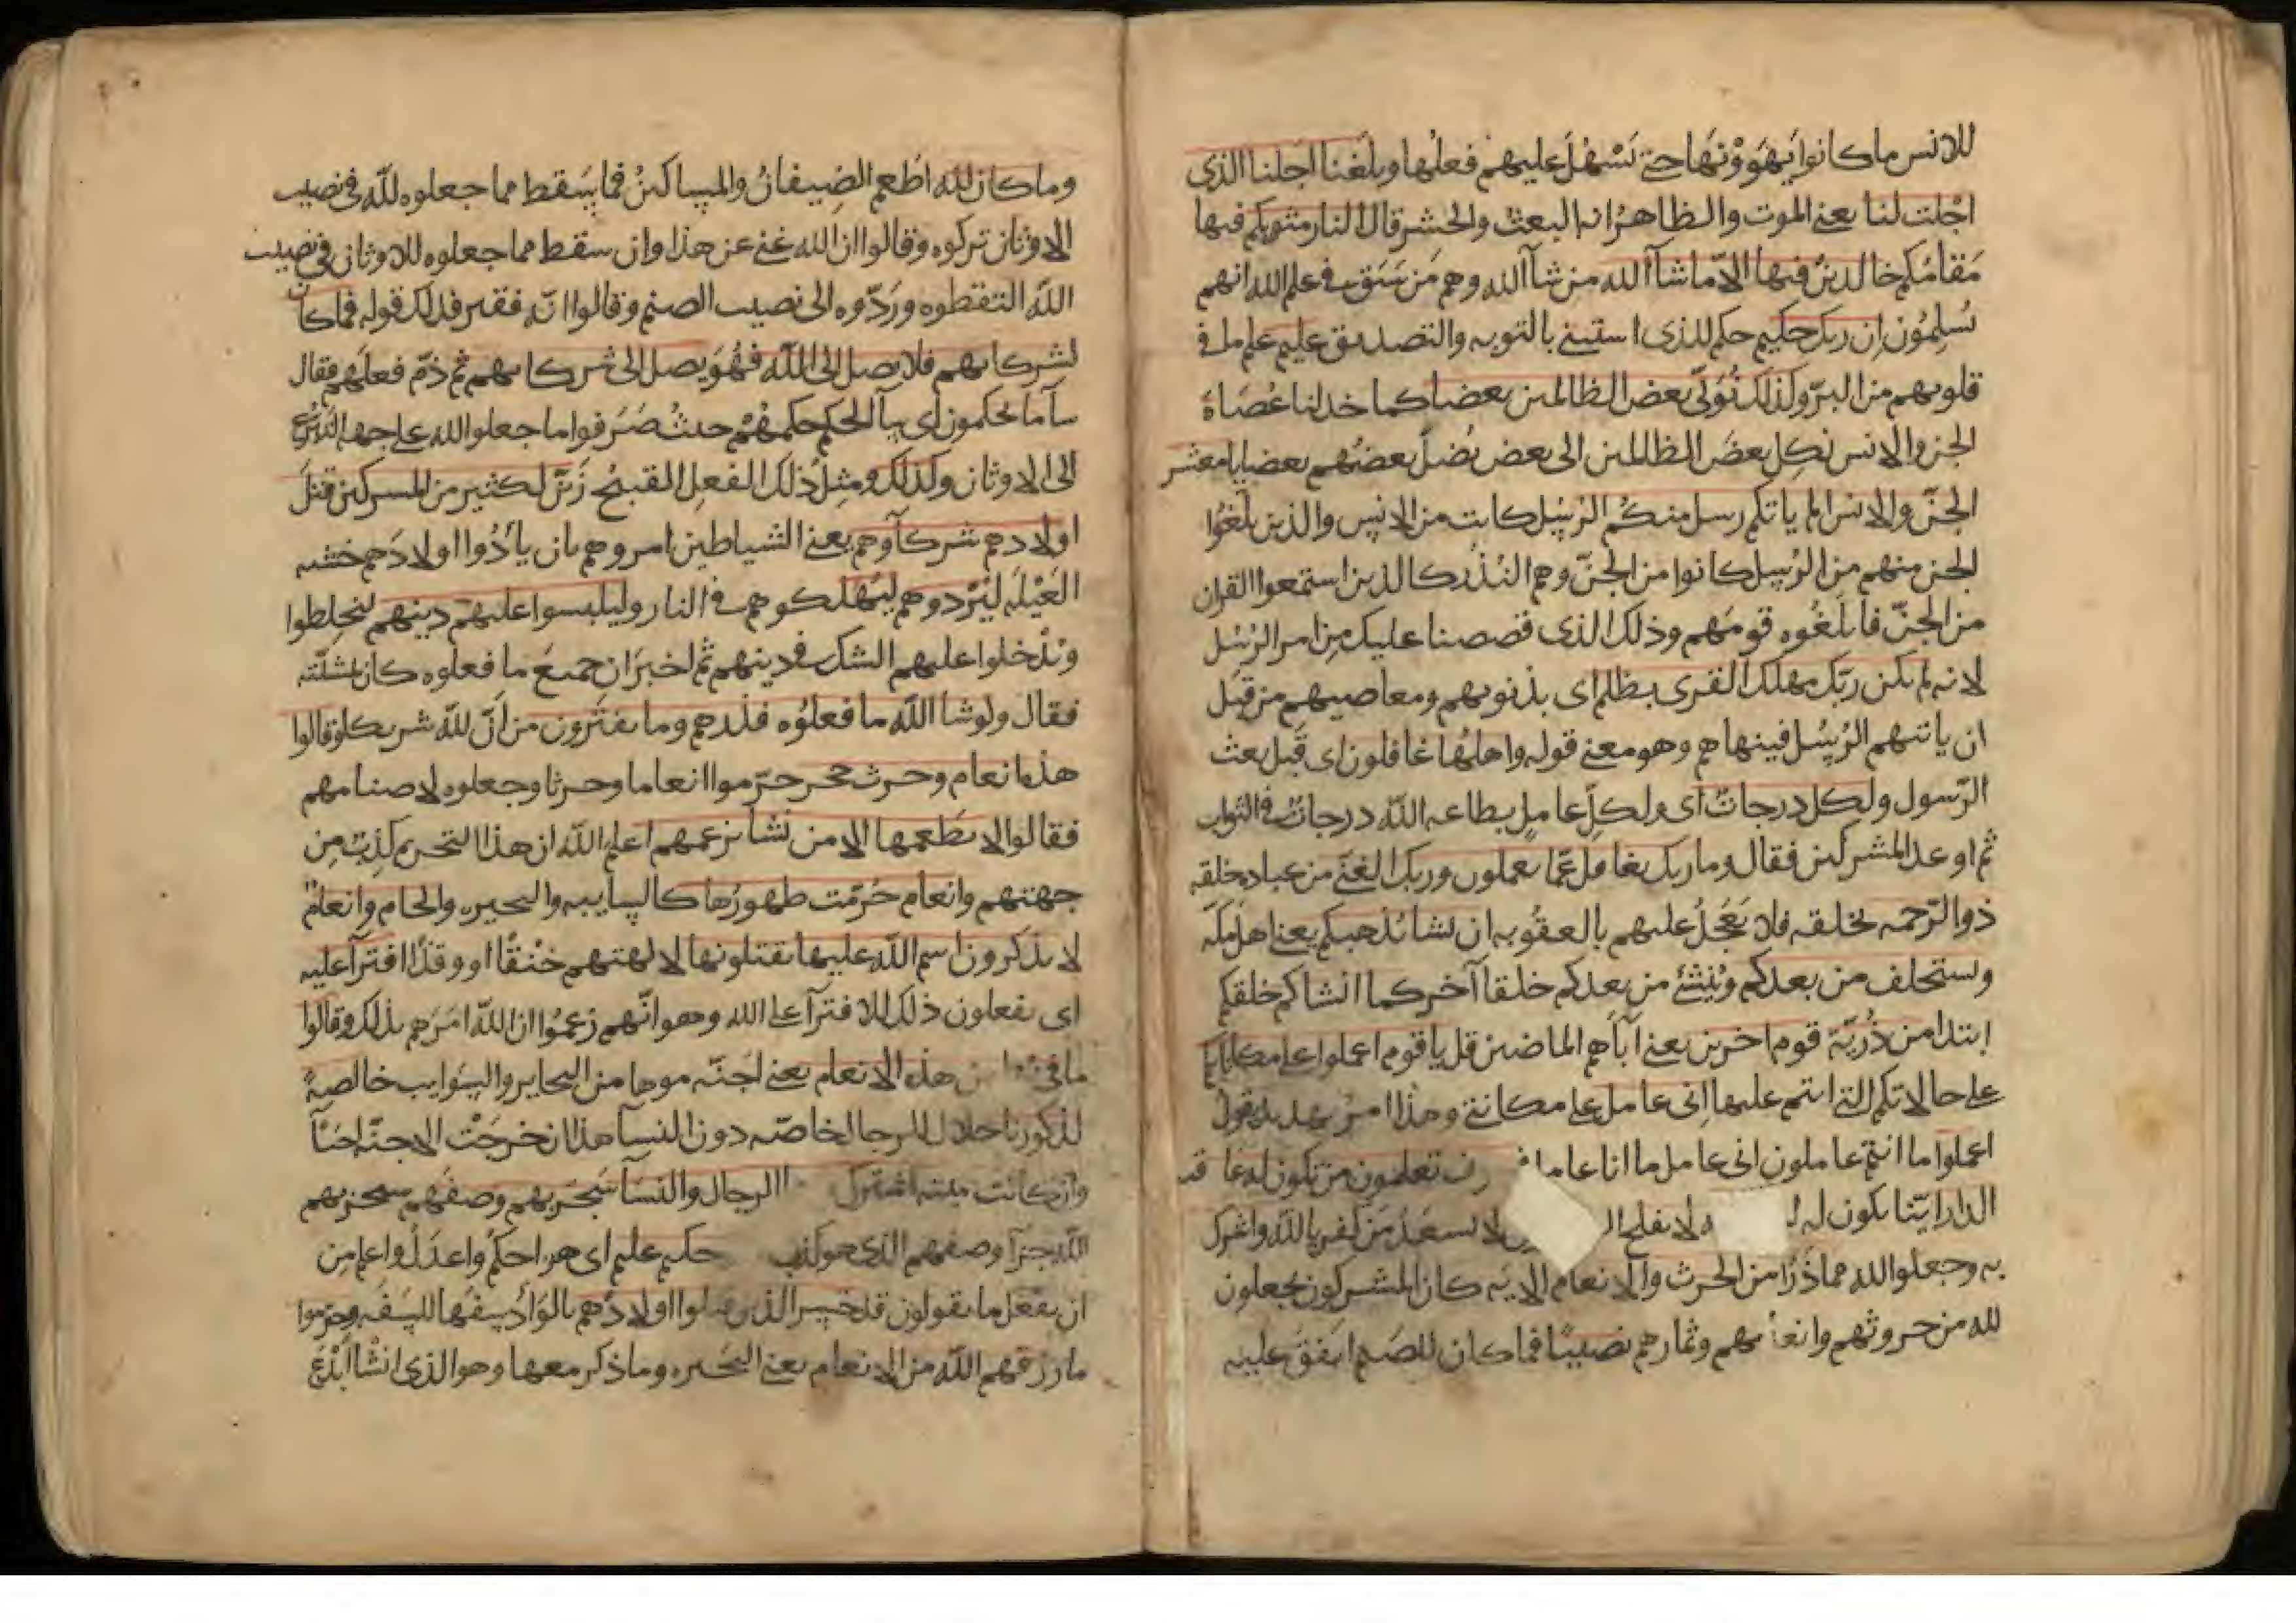 للانس ما كانوا يَهوَوْنَها حتى يَسْهُلَ عليهم فعلُها وبلغنا اجلنا الذي
اجّلت لنا يعني الموت والظاهرُ انه البعث والحشر قال النار مثويكم فيها
مَقامُكم خالدين فيها الاّ ما شآ الله من شآ الله وهم مَن سَبَق في علم الله انهم
يُسلِمُون ان ربك حكيم حكم للذي استثنى بالتوبه والتصديق عليم علم ما في
قلوبهم من البرّ وكذلك نُوَلّي بعض الظالمين بعضا كما خذلنا عُصَاةَ
الجن والانس نَكِل بعضَ الظالمين الى بعض يُضلّ بعضُهم بعضا يا معشر
الجنّ والانس الم ياتكم رسل منكم الرُسُل كانت من الانس والذين بَلَّغُوا
الجن منهم من الرُسل كانوا من الجنّ وهم النُذُر كالذين استمعوا القران
من الجنّ فابلَغُوه قومَهم وذلك الذي قصصنا عليك من امر الرُسُل
لانه لم يكن ربّك مهلك القرى بظلم اي بذنوبهم ومعاصيهم من قبل
ان ياتيهم الرُسُل فينهاهم وهو معنى قوله واهلُها غافلون اي قبل بعث
الرّسول ولكل درجاتٌ اي ولكلِّ عاملٍ بطاعه اللّه درجاتٌ في الثواب
ثم اوعد المشركين فقال وما ربك بغافل عمّا يعملون وربك الغنيّ من عباده خلقه
ذو الرّحمه بخلقه فلا يَعْجَلُ عليهم بالعقُوبه ان يشا يُذهبكم يعني اهل مكّه
ويستخلف من بعدكم ويُنشئ من بعدكم خلقا آخر كما انشاكم خلقكم
ابتدا من ذُرّيّة قوم اخرين يعني آباهم الماضين قل يا قوم اعملوا على مكاناتكم
على حالاتكم التي انتم عليها اني عامل على مكانتي وهذا امرُ تهديد يقول
اعملوا ما انتم عاملون اني عامل ما انا عامل تعلمون من تكون له عا قبـ
الدار ايّنا يكون له ه لا يفلح الـ لا يسعَدُ مَن كفر بالله واشرك
به وجعلوا لله مما ذَرَا من الحرث والانعام الايَه كان المشركون يجعلون
لله من حروثهم وانعامهم وثمارهم نصيبًا فما كان للصنم انفقَ عليه
وما كان للّه اُطعم الضِيفانُ والمساكينُ فما سَقط مما جعلوه للّه في نصيب
الاوثان تركوه وقالوا ان الله غني عن هذا وان سقط مما جعلوه للاوثان في نصيب
اللّه التقطوه ورَدّوه الى نصيب الصنم وقالوا انّه فقير فذلك قوله فما كان
لشركائهم فلا يصل الى اللّه فهُوَ يصل الى شركائهم ثم ذمّ فعلَهم فقال
سآ ما يحكمون اي سآ الحكم حكمُهُم حيثُ صَرَفوا ما جعلوا لله على جهه التبرُّع
الى الاوثان وكذلك ومثلُ ذلك الفعل القبيح زَيّن لكثير من المشركين قتلَ
اولادهم شركآوهم يعني الشياطين امروهم بان يأدُوا اولادَهم خشيه
العَيْلَه لِيُرْدوهم ليُهلكوهم في النار وليلبسوا عليهم دينهم ليخلِطوا
ويُدْخلوا عليهم الشك في دينهم ثم اخبَرَ ان جميعَ ما فعلوه كان بمشيّته
فقال ولو شا اللّه ما فعلُوه فذرهم وما يفترون من انّ للّه شريكا وقالوا
هذه انعام وحرث حجر حرّموا انعاما وحرثا وجعلوه لاصنامهم
فقالوا لا يطعمها الا من نشا بزعمهم اعلم اللّه ان هذا التحريم كذِبٌ من
جهتهم وانعام حُرّمت ظهورُها كالسايبه والبحيره والحام وانعامٌ
لا يذكرون اسم اللّه عليها يقتلونها لالهتهم خنْقًا او وقذًا افترآ عليه
اي يفعلون ذلك للافترآ على الله وهو انّهم زعمُوا ان اللّه امَرَهم بذلك وقالوا
ما في هذه الانعام يعني اجنّه موها من البحاير والسَوايب خالصةٌ
لذكورنا حلال للرجال خاصّه دون النسآ هذا ان خرجَتْ الاجنّه احيآ
وان كانت ميته اشترك الرجال والنسآ سَيجزيهم وصفَهم سيجزيهم
اللّه جزآ وصفهم الذي هو كذب حكيم عليم اي هو احكم واعدلُ واعلم من
ان يفعَل ما يقولون قد خسر الذين قتلوا اولادهم بالوَأد سفَهًا للسَفَه وحرّموا
ما رزقهم اللّه من الانعام يعني البَحيره وما ذكر معها وهو الذي انشا أَبْدَعَ